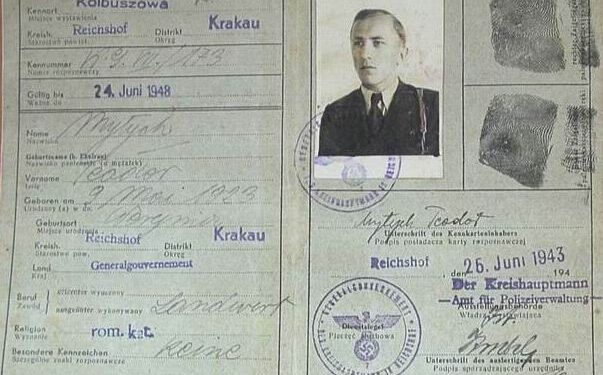 Kennort Kolbuszowa
Miejsce wystawienia
Kreish. Reichshof Distrikt Krakau
Starostwo powiat. Okręg
Kennummer
Numer rozpoznawczy
Gültig bis 24. Juni 1948
Ważne do
Name Mytych
Nazwisko
Geburtsname (b. Ehefrau)
Nazwisko panieńskie (u mężatek)
Vorname Teodor
Imię
Geboren am 9 Mai 1923
Urodzony (a) w dn.
Geburtsort
Miejsce urodzenia
Kreish. Reichshof Distrikt Krakau
Starostwo pow. Okręg
Land Generalgouvernement
Kraj
Beruf erlernter wyuczony
Zawód ausgeübter wykonywany Landwirt
Religion rom. kat.
Wyznanie
Besondere Kennzeichen keine
Szczególne znaki rozpoznawcze
Mytych Teodor
Unterschrift des Kennkarteninhabers
Podpis posiadacza karty rozpoznawczej
Reichshof, den 26. Juni 1943 194
Der Kreishauptmann
—Amt für Polizeiverwaltung—
Ausstellungsbehörde
Władza wystawiająca
GENERALGOUVERNEMENT
Dienstsiegel
Pieczęć służbowa
Unterschrift des ausfertigenden Beamten
Podpis sporządzającego urzędnika